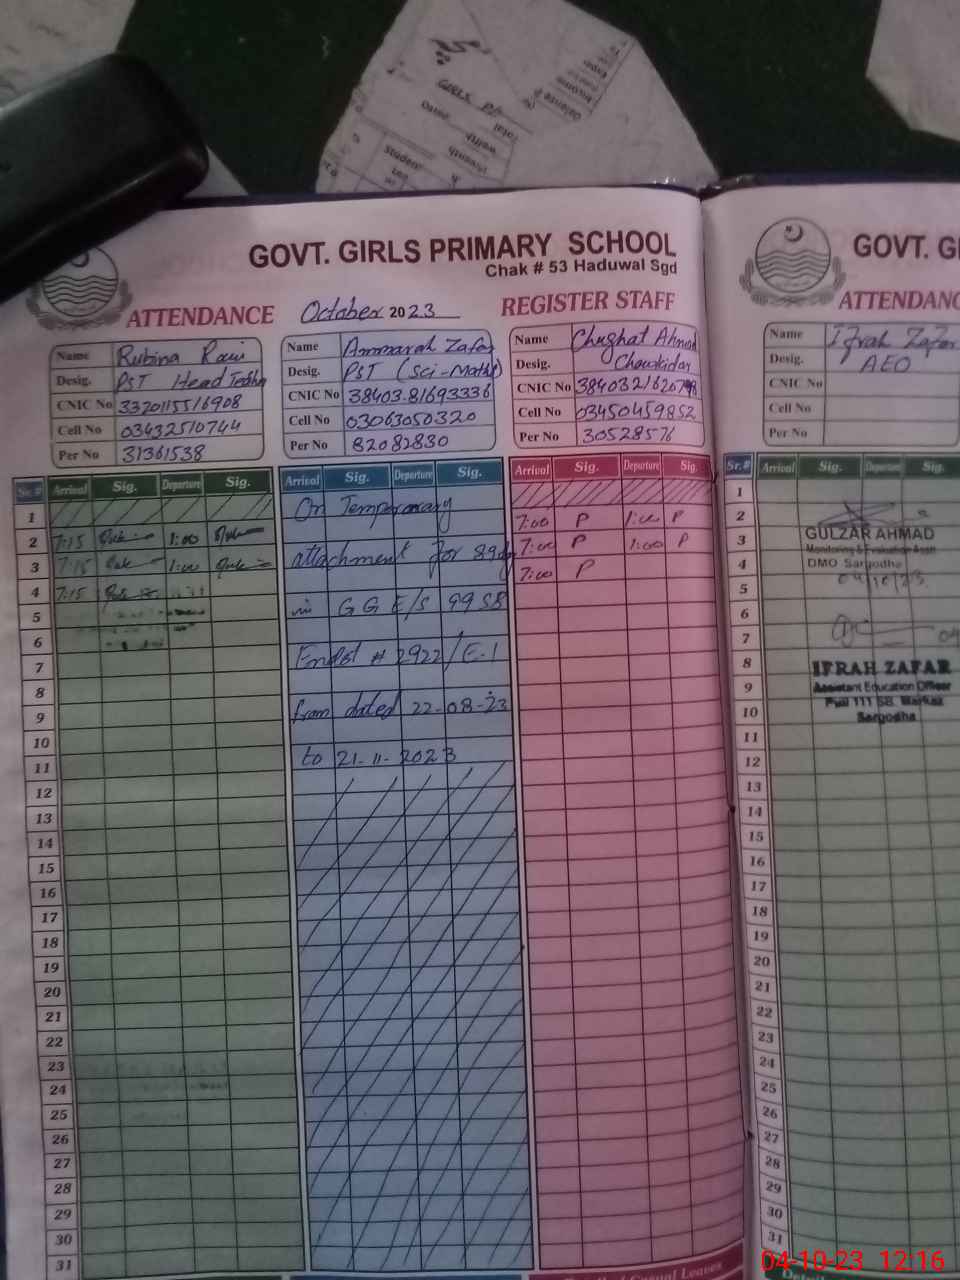 GIRLS
GOVT. GIRLS PRIMARY SCHOOL
Chak # 53 Haduwal Sgd
ATTENDANCE October 2023 REGISTER STAFF
Name Rubina
Desig. PST Head
CNIC No 3320115516908
Cell No 03432510744
Per No 31361538
Name Ammarah Zafar
Desig. PST (Sci-Math)
CNIC No 38403.81693336
Cell No 03063050320
Per No 82082830
Name Chughat Ahmad
Desig. Chowkidar
CNIC No
Cell No 03450459852
Per No 30528576
Sr. # Arrival Sig. Departure Sig. Arrival Sig. Departure Sig. Arrival Sig. Departure Sig.
1
2 7:15 1:00 7:00 P 1:00 P
3 7:15 1:00 7:00 P 1:00 P
4 7:15 7:00 P
5
6
7
8
9
10
11
12
13
14
15
16
17
18
19
20
21
22
23
24
25
26
27
28
29
30
31
On Temporary
attachment for 89 dy
in G G E/S 99 SB
Endst # 2922/E-1
from dated 22-08-23
to 21-11-2023
Casual Leaves
GOVT. GI
ATTENDANC
Name Ifrah Zafar
Desig. AEO
CNIC No
Cell No
Per No
Sr. # Arrival Sig. Departure Sig.
1
2
3
4
5
6
7
8
9
10
11
12
13
14
15
16
17
18
19
20
21
22
23
24
25
26
27
28
29
30
31
GULZAR AHMAD
Monitoring & Evaluation Asstt
DMO Sargodha
04/10/23
IFRAH ZAFAR
Assistant Education Officer
111 SB. Markaz
Sargodha
04-10-23 12:16